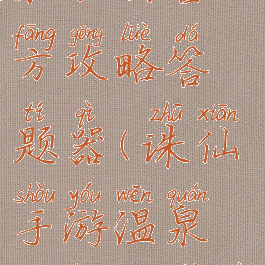 fāng gōng lüè dá
方攻略答
tí qì zhū xiān
题器(诛仙
shǒu yóu wēn quán
手游温泉